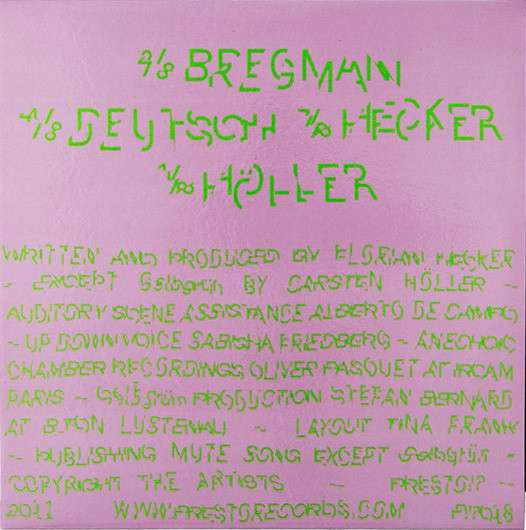 2/8 BREGMAN
4/8 DEUTSCH 7/8 HECKER
1/8 HÖLLER
WRITTEN AND PRODUCED BY FLORIAN HECKER
~ EXCEPT BY CARSTEN HÖLLER ~
AUDITORY SCENE ASSISTANCE ALBERTO DE CAMPO
~ UP DOWN VOICE SABISHA FRIEDBERG ~ ANECHOIC
CHAMBER RECORDINGS OLIVER PASQUET AT IRCAM
PARIS ~ PRODUCTION STEFAN BERNARD
AT B.TON LUSTENAU ~ LAYOUT TINA FRANK
~ PUBLISHING MUTE SONG EXCEPT ~
COPYRIGHT THE ARTISTS ~ PRESTO!? ~
2011 WWW.PRESTORECORDS.COM P!?018